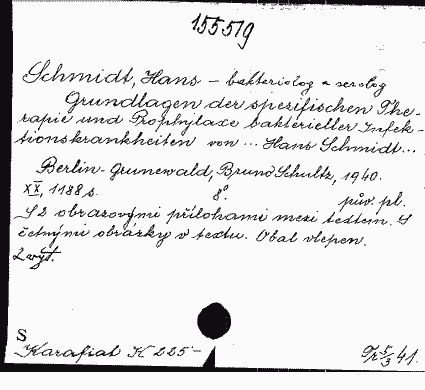 155519
Schmidt, Hans - bakteriolog a serolog
Grundlagen der spezifischen The-
rapie und Prophylaxe bakterieller Infek-
tionskrankheiten von ... Hans Schmidt...
Berlin-Grunewald, Bruno Schultz, 1940.
XX, 1188 s. 8°. pův. pl.
S 2 obrazovými přílohami mezi textem. S
četnými obrázky v textu. Obal vlepen.
2 výt.
S
Karafiat K 225-
Tr 5/3 41.